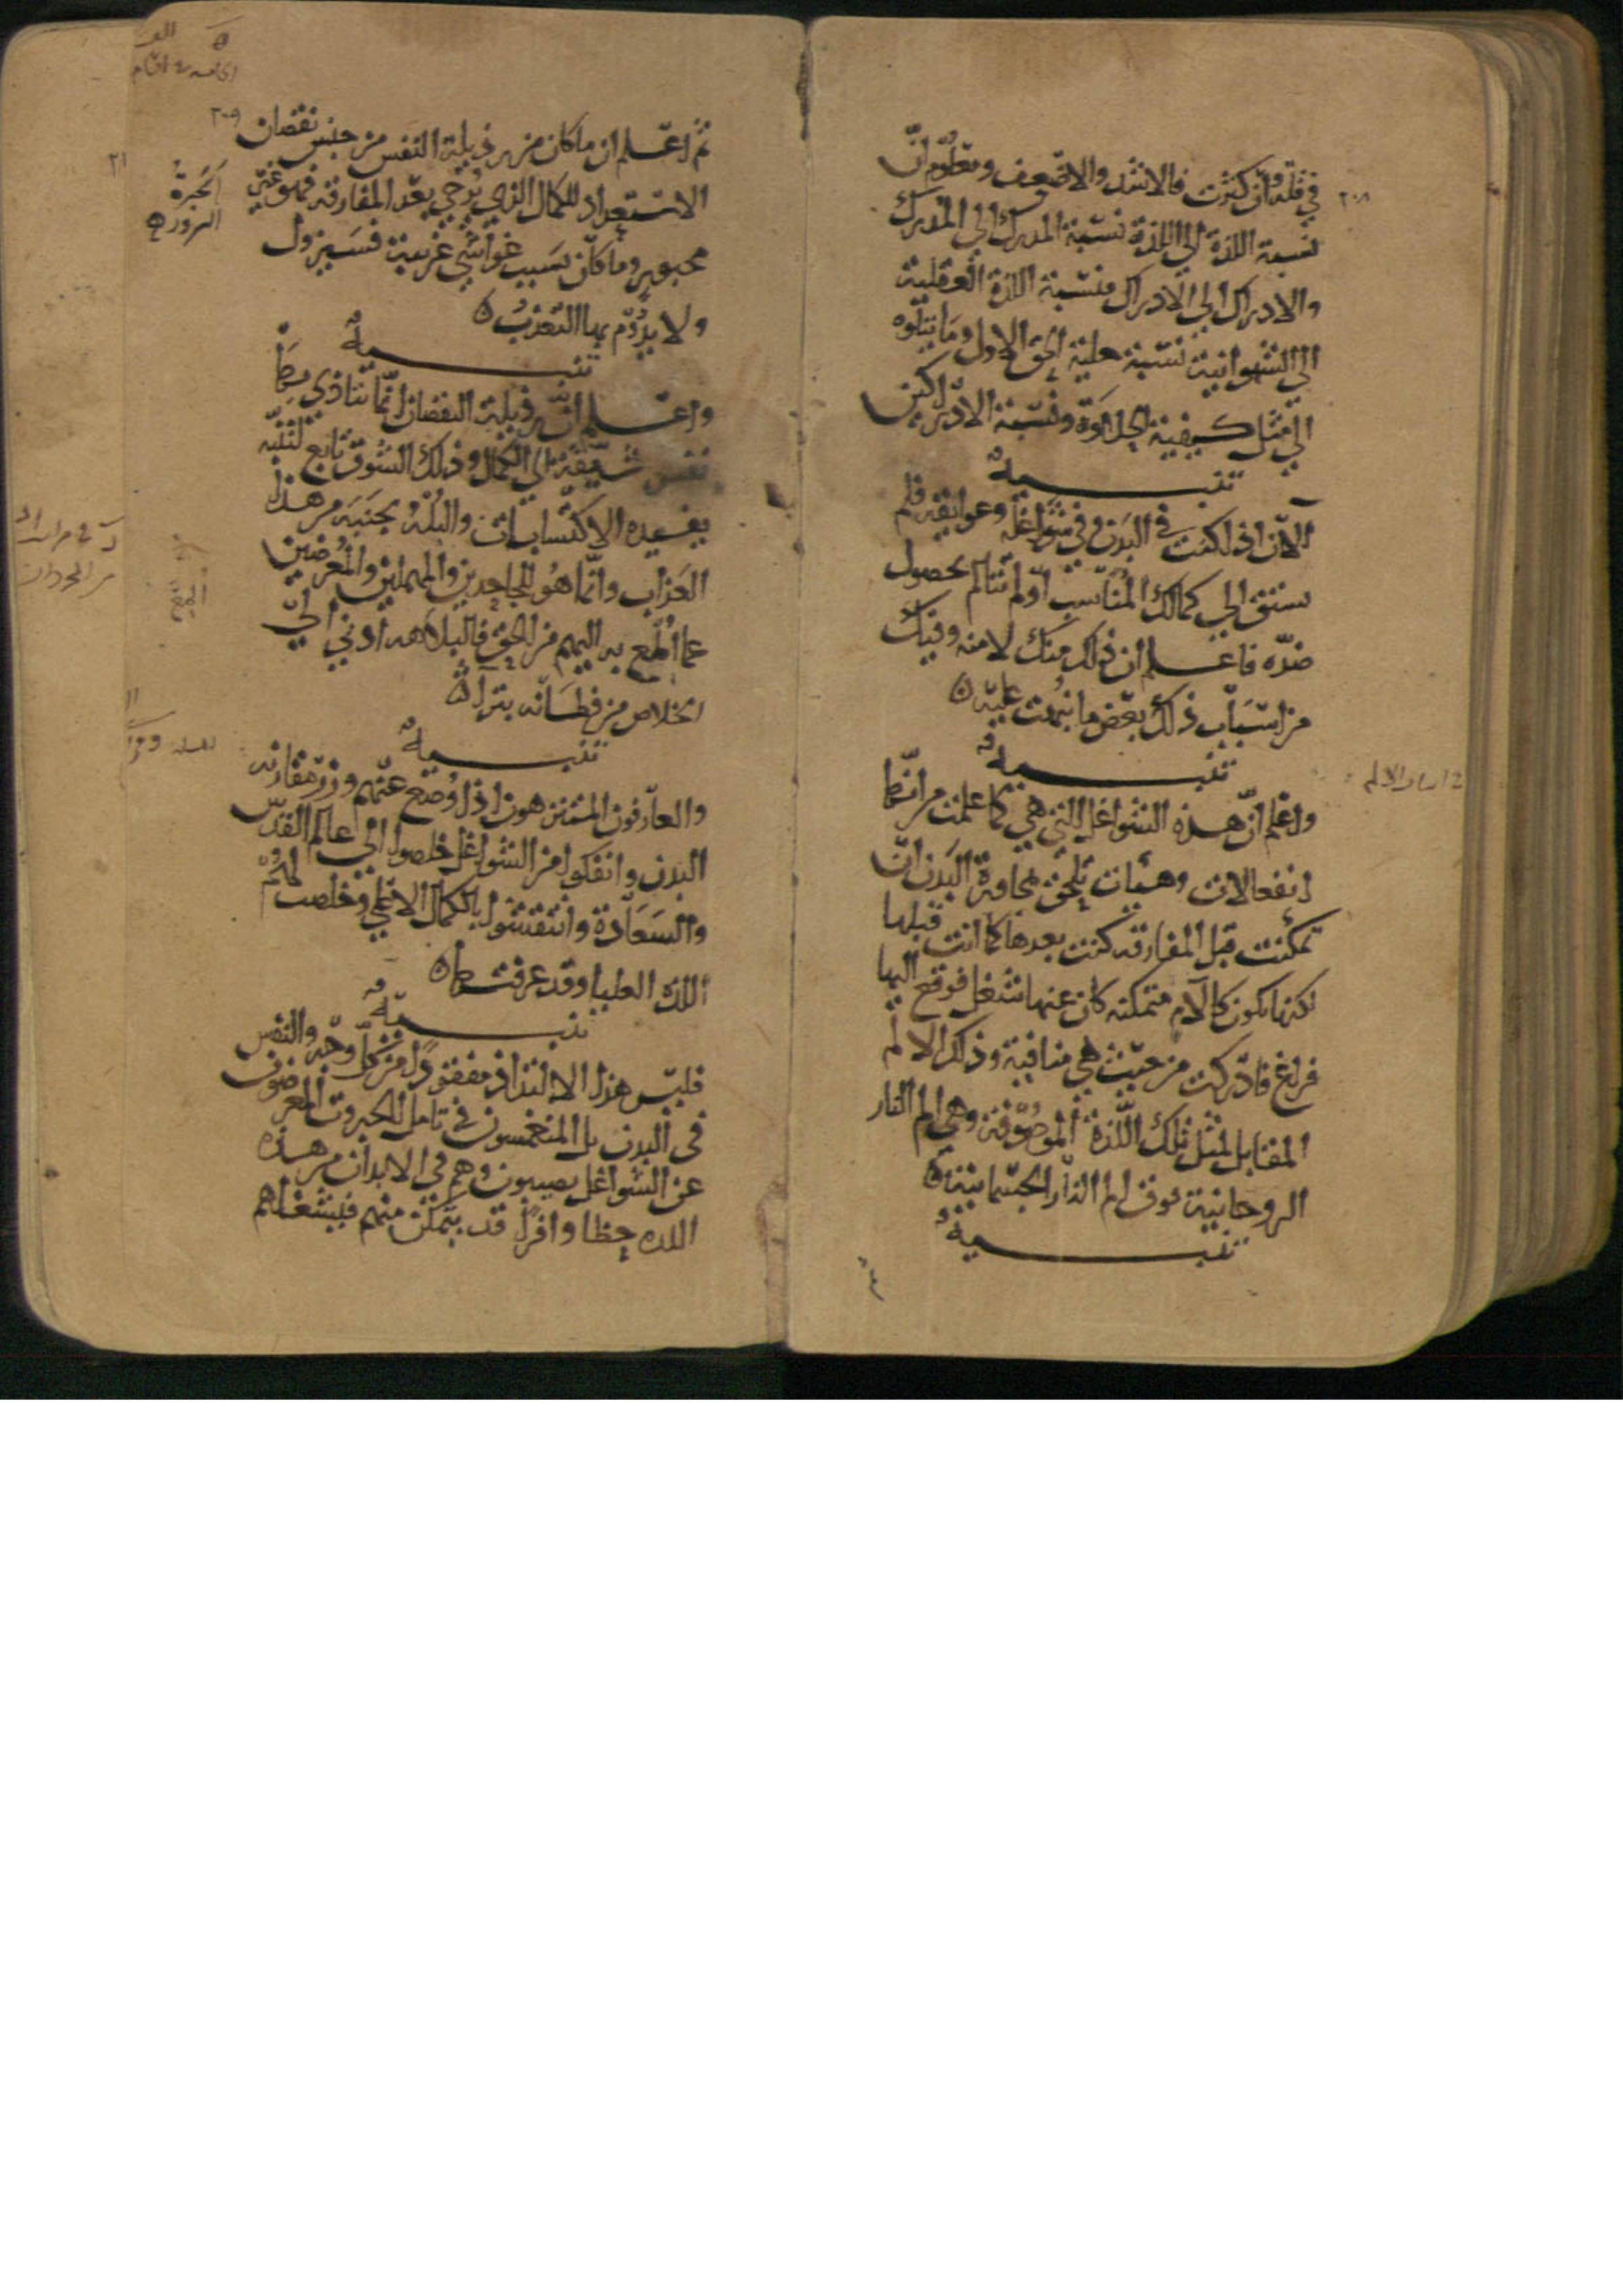 ٢٠٨
في قلة وان كثرت فالاشد والاضعف ومعلوم ان
نسبة اللذة الي اللذة نسبة المدرك الي المدرك
والادراك الي الادراك فنسبة اللذة العقلية
الي الشهوانية نسبة جلية الحق الاول وما يتلوه
الي مثل كيفية الحلاوة ونسبة الادراكين
تنبيه
الآن اذا كنت في البدن وفي شواغله وعوائقه فلم
تشتق الي كمالك المناسب او لم تتالم بحصول
ضده فاعلم ان ذلك منك لا منه وفيك
من اسباب ذلك بعض ما نبهت عليه
تنبيه
واعلم ان هذه الشواغل التي هي كما علمت من انها
انفعالات وهيئات تلحق بمجاورة البدن ان
تمكنت قبل المفارقة كنت بعدها كما انت قبلها
لكنها تكون كآلام متمكنة كان عنها شغل فوقع اليها
فراغ فادركت من حيث هي منافية وذلك الالم
المقابل لمثل تلك اللذة الموصوفة وهي الم النار
الروحانية فوق الم النار الجسمانية
تنبيه
٢٠٩
ثم اعلم ان ما كان من رذيلة النفس من جنس نقصان
الاستعداد للكمال الذي يرجي بعد المفارقة فهو غير
مجبور وما كان بسبب غواشي غريبة فسيزول
ولا يدوم بها التعذب
تنبيه
واعلم ان رذيلة النقصان انما تتاذي بها
نفس شيقة الي الكمال وذلك الشوق تابع لتنبه
يفيده الاكتسابات والبله بجنبة من هذا
العذاب وانما هو للجاحدين والمهملين والمعرضين
عما المع به اليهم من الحق فالبلاهة ادني الي
الخلاص من فطانة بتراء
تنبيه
والعارفون المتنزهون اذا وضع عنهم وزر مقارنة
البدن وانفكوا من الشواغل خلصوا الي عالم القدس
والسعادة وانتقشوا بالكمال الاعلي وخلصت لهم
اللذة العليا وقد عرفتها
تنبيه
فليس هذا الالتذاذ مفقودا من كل وجه والنفس
في البدن بل المنغمسون في تامل الجبروت المعرضون
عن الشواغل يصيبون وهم في الابدان من هذه
اللذه حظا وافرا قد يتمكن منهم فيشغلهم